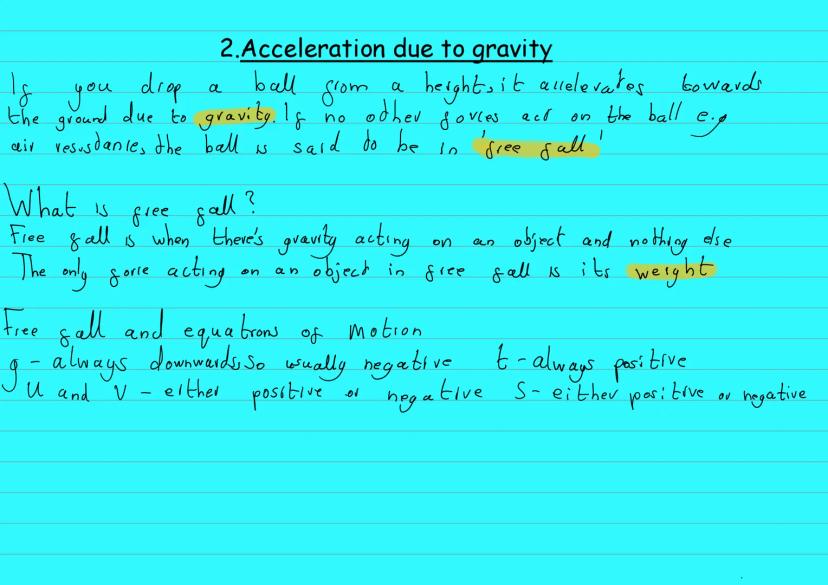 2.Acceleration due to gravity
If you drop a ball from a height, it accelerates towards
the ground due to gravity. If no other forces act on the ball e.g
air resistance, the ball is said to be in 'free fall'
What is free fall?
Free fall is when there's gravity acting on an object and nothing else
The only force acting on an object in free fall is its weight
Free fall and equations of motion
g - always downwards, so usually negative t - always positive
U and V - either positive or negative S - either positive or negative